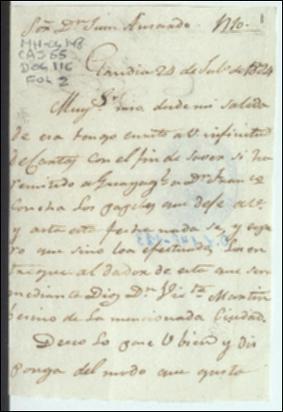 Sor Dn Juan
MH-OL 148
CAJ 65
DOC 116
FOL 2
24 de Julo de 1824
Muy Sr mio desde mi salida
de esa tengo escrito a V infinitud
de Cartas con el fin de saver si ha
remitido a Guayaql a Dn Franco
Concha los papeles que deje a
y asta esta fecha nada se, y espe
ro que sino lo a efectuado, los en
tregue al dador de esta que sera
mediante Dios Dn Victe Martin
de la mencionada Ciudad.
Deseo lo pase V bien y dis
ponga del modo que guste